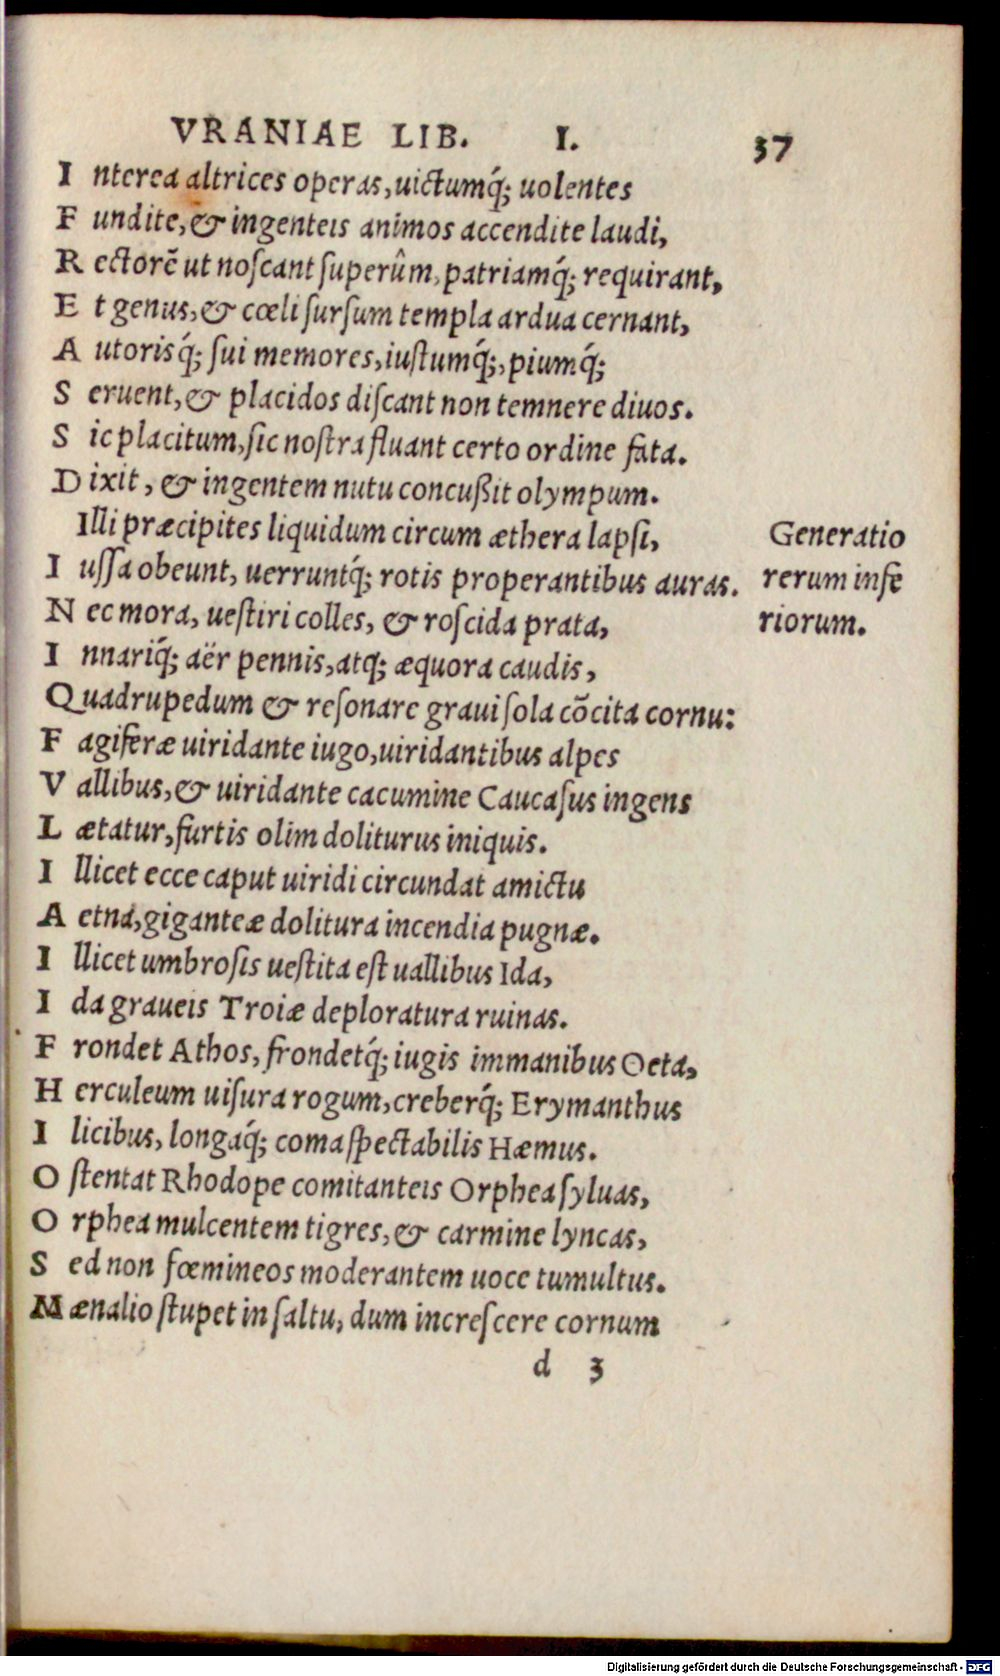 VRANIAE LIB. I. 37
I nterea altrices operas, uictumq́; uolentes
F undite, & ingenteis animos accendite laudi,
R ectorē ut noſcant ſuperûm, patriamq́; requirant,
E t genus, & cœli ſurſum templa ardua cernant,
A utorisq́; ſui memores, iuſtumq́;, piumq́;
S eruent, & placidos diſcant non temnere diuos.
S ic placitum, ſic noſtra fluant certo ordine fata.
D ixit, & ingentem nutu concußit olympum.
Illi præcipites liquidum circum æthera lapſi,
Generatio
I uſſa obeunt, uerruntq́; rotis properantibus auras.
rerum infe
N ec mora, ueſtiri colles, & roſcida prata,
riorum.
I nnariq́; aër pennis, atq; æquora caudis,
Quadrupedum & reſonare graui ſola cōcita cornu:
F agiferæ uiridante iugo, uiridantibus alpes
V allibus, & uiridante cacumine Caucaſus ingens
L ætatur, furtis olim doliturus iniquis.
I llicet ecce caput uiridi circundat amictu
A etna, giganteæ dolitura incendia pugnæ.
I llicet umbroſis ueſtita eſt uallibus Ida,
I da graueis Troiæ deploratura ruinas.
F rondet Athos, frondetq́; iugis immanibus Oeta,
H erculeum uiſura rogum, creberq́; Erymanthus
I licibus, longaq́; coma ſpectabilis Hæmus.
O ſtentat Rhodope comitanteis Orphea ſyluas,
O rphea mulcentem tigres, & carmine lyncas,
S ed non fœmineos moderantem uoce tumultus.
M ænalio ſtupet in ſaltu, dum increſcere cornum
d 3
Digitalisierung gefördert durch die Deutsche Forschungsgemeinschaft - DFG